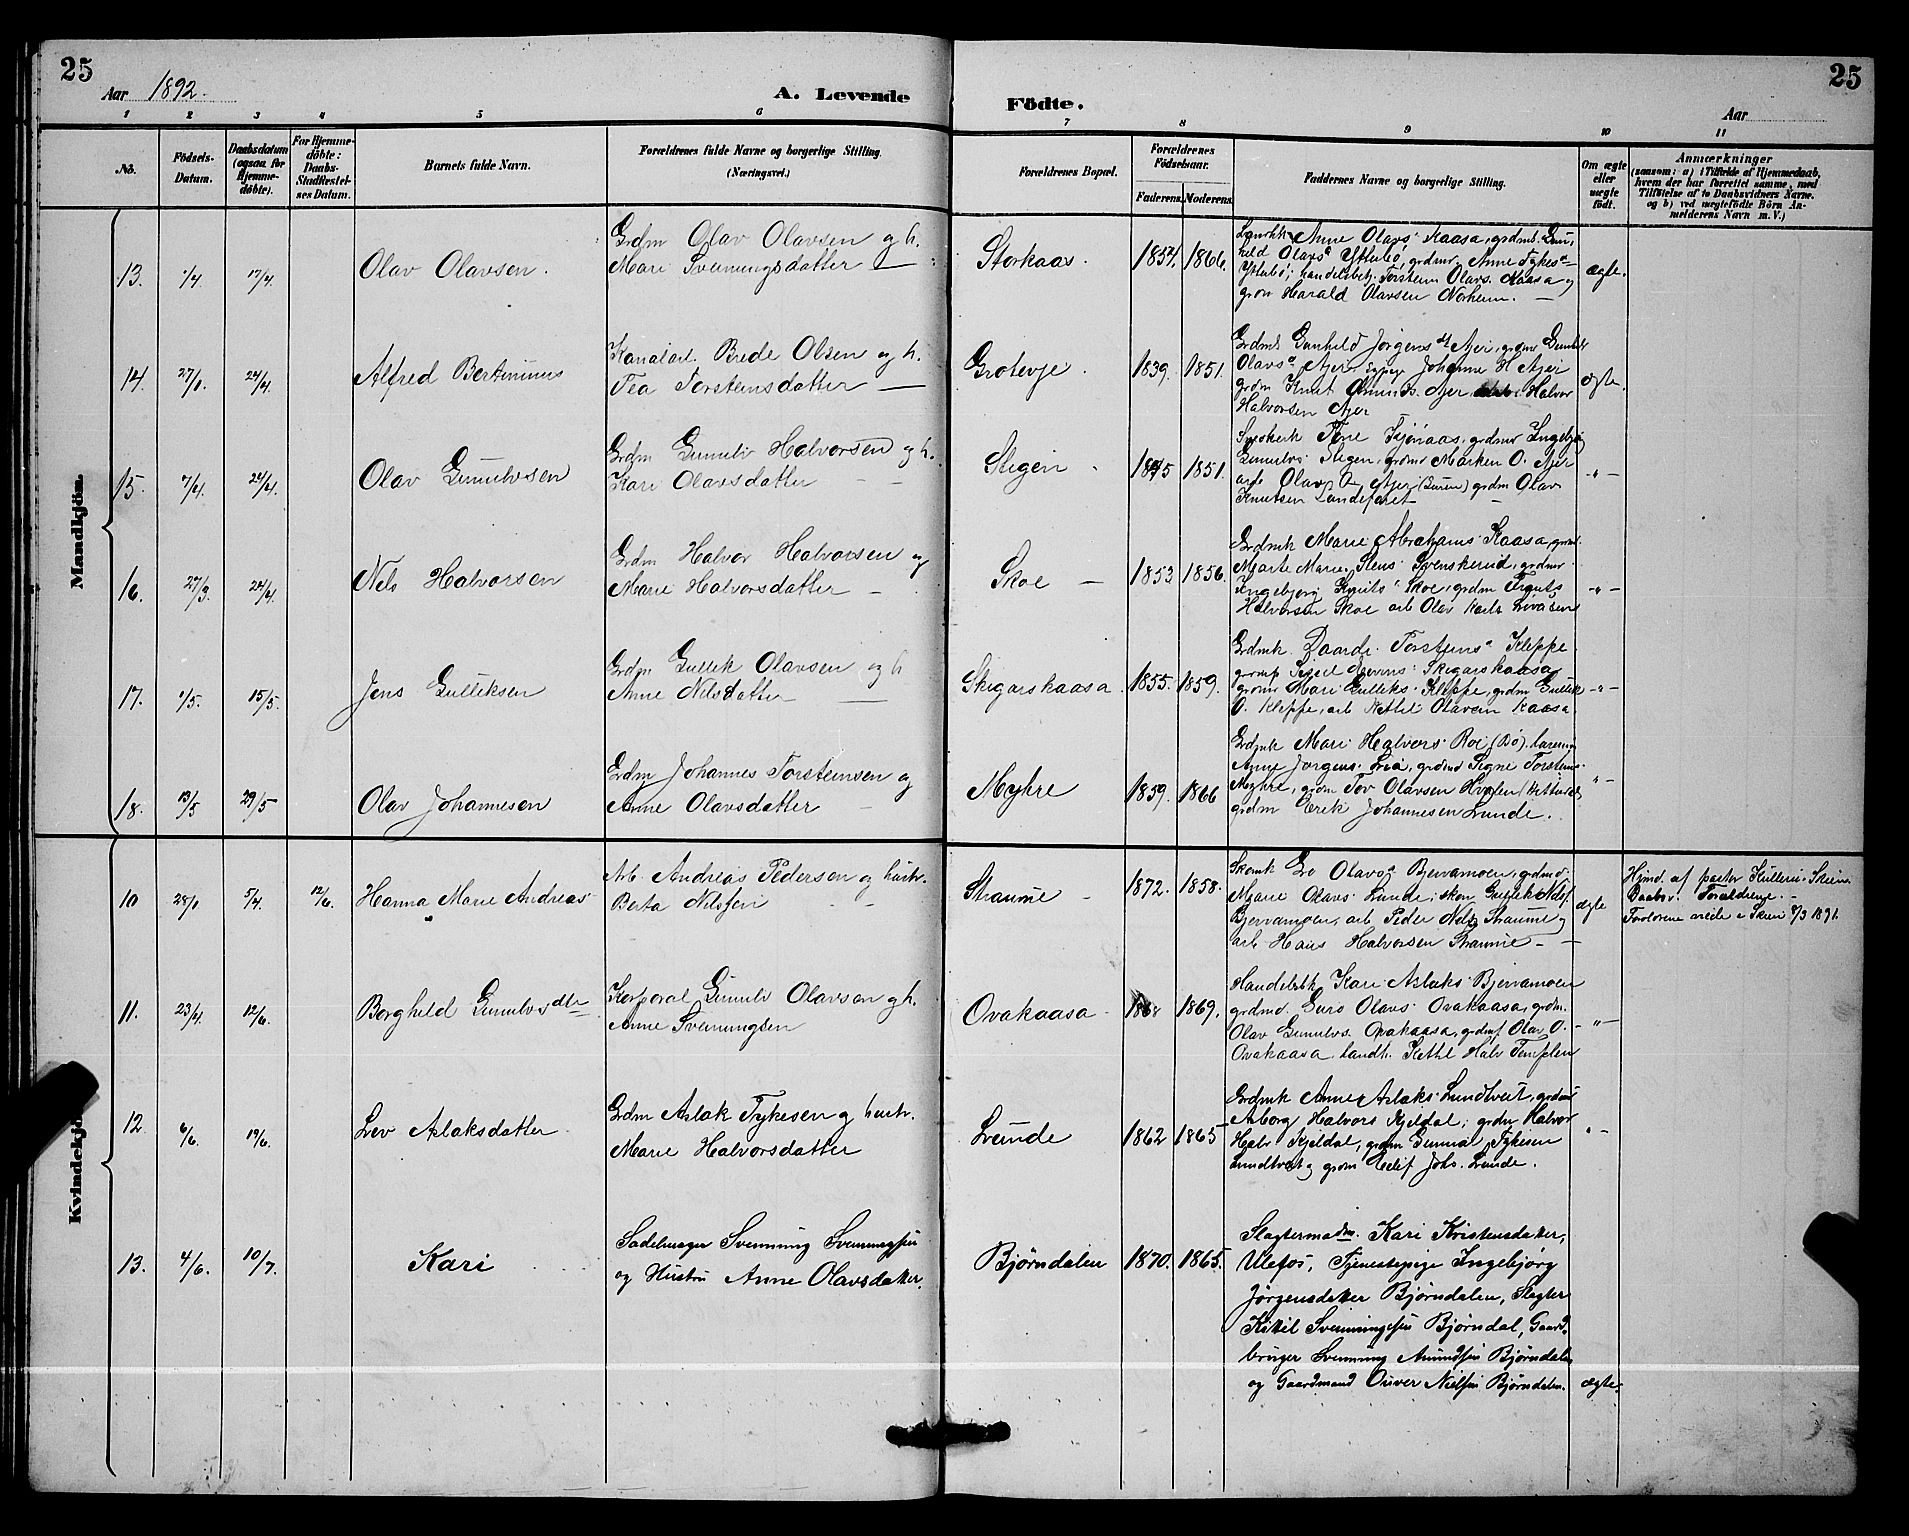 25
25
Aar 1892.
A. Levende
Födte.
Aar
1 2 3 4 5 6 7 8 9 10 11
No.
Födsels-Datum.
Daabsdatum (ogsaa for Hjemme-döbte).
For Hjemme-döbte: Daabs-Stadfæstel-ses Datum.
Barnets fulde Navn.
Forældrenes fulde Navne og borgerlige Stilling. (Næringsvei.)
Forældrenes Bopæl.
Forældrenes Födselsaar.
Faderens. Moderens.
Faddernes Navne og borgerlige Stilling.
Om ægte eller uægte födt.
Anmærkninger
(saasom: a) i Tilfælde af Hjemmedaab,
hvem der har forrettet samme, med
Tilföielse af to Daabsvidners Navne.
og b) ved uægtefödte Börn An-
melderens Navn m. V.)
Mandkjön.
13. 1/4 17/4. Olav Olavsen.
Grdm Olav Olavsen og h.
Mari Sveinungsdatter
Storkaas. 1854. 1866.
Anne Olavs Kaasa, grdmk. Gun-
hild Olavs Ytterbö, grdmr. Anne Tykes
Ytterbö; handelsbetj. Torstein Olavs. Kaasa og
grdm Harald Olavsen Norheim.
ægte.
14. 27/1. 24/4. Alfred Bertinius
Kanalarb. Brede Olsen og h.
Tea Torsteinsdatter
Grotevje. 1839. 1851.
Grdmk Gunhild Jørgens Ajer, grdmr Gunhild
Olavs Ajer, Johanne H Ajer
grdm Knut Ajer, Halvor
Halvorsen Ajer
ægte.
15. 7/4. 24/4. Olav Gunulvsen
Grdm Gunulv Halvorsen og h.
Kari Olavsdatter
Stigen 1845 1851.
Tone Kjönaas, grdmr Ingebjør
Gunulvs Stegen, grdmr Marken O. Ajer
arb Olav O. Ajer grdm Olav
Knutsen Landefaret
-"-
16. 27/3. 24/4. Nils Halvorsen
Grdm Halvor Halvorsen og
Marie Halvorsdatter
Skoe 1853 1856.
Grdmk Marie Abrahams Kaasa, grdmr
Marte Marie Stens Svenskerud, grdmr
Ingebjørg Knuts Skoe, grdm
Halvorsen Skoe arb Olav
-"-
17. 1/5. 15/5. Jens Gulliksen
Grdm Gullik Olavsen og h
Anne Nilsdatter
Skigarskaasa. 1855. 1859.
Grdmk. Daarde Torsteins Kleppe
Skigarskaasa,
grdmr Mari Gulliks Kleppe, grdm Gullik
O. Kleppe, arb Kettil Olavsen Kaasa.
-"-
18. 13/5 29/5. Olav Johannesen
Grdm Johannes Torsteinsen og
Anne Olavsdatter
Myhre 1859. 1866
Grdmk Mari Halvors Roe (Bö),
Anne Jørgens Lia, grdmr Signe Torsteins
Myhre, grdm Tov Olavsen
grdm Erik Johannesen Lunde.
"
Kvindekj
10 28/1 5/4. 12/6. Hanna Marie Andreas
Arb. Andreas Pedersen og hustr.
Berta Nilsen
Straume 1872. 1858.
Skomk Gro Olavs Bjervamoen, grdmd.
Marie Olavs Lunde, skom Gullik Nilsf.
Bjervamoen, arb Peder Nels Straume og
arb Hans Halvorsen Straume
ægte
Hjmd. af pastor i Skien.
Daabsv. Forældrene.
Forældrene viede i Skien 8/3 1891.
11. 23/4. 12/6. Borghild Gunulvsdtr
Korporal Gunulv Olavsen og h.
Anne Sveinungsen
Ovakaasa 1868 1869.
Handelsbk Kari Aslaks Bjervamoen
grdmd. Guro Olavs Ovakaasa, grdm.
Olav Gunulvs. Ovakaasa, grdmf Olav O.
Ovakaasa, landh. Kettil Halv Templen
-"-
12 6/6. 19/6. Liv Aslaksdatter
Grdm Aslak Tykesen og hustr.
Marie Halvorsdatter
Lunde 1862 1865
Grdmk Anne Aslaks Lundtveit, grdmr
Aaborg Halvors Kjeldal; grdm Halvor
Halv Kjeldal, grdm Gunnar Tykesen
Lundtveit og grdm Johs. Lunde.
"-
13. 4/6. 10/7. Kari
Sadelmager Svenning Svenningsen
og Hustru Anne Olavsdatter.
Bjørndalen 1870. 1865.
Slagtermadm. Kari Kristensdatter,
Ulefos, Tjenestepige Ingebjørg
Jørgensdatter Bjørndalen, Slagter
Kittil Svenningsen Bjørndal, Gaard-
bruger Svenning Amundsen Bjørndalen
og Gaardmand Oliver Nielsen Bjørndalen.
ægte.